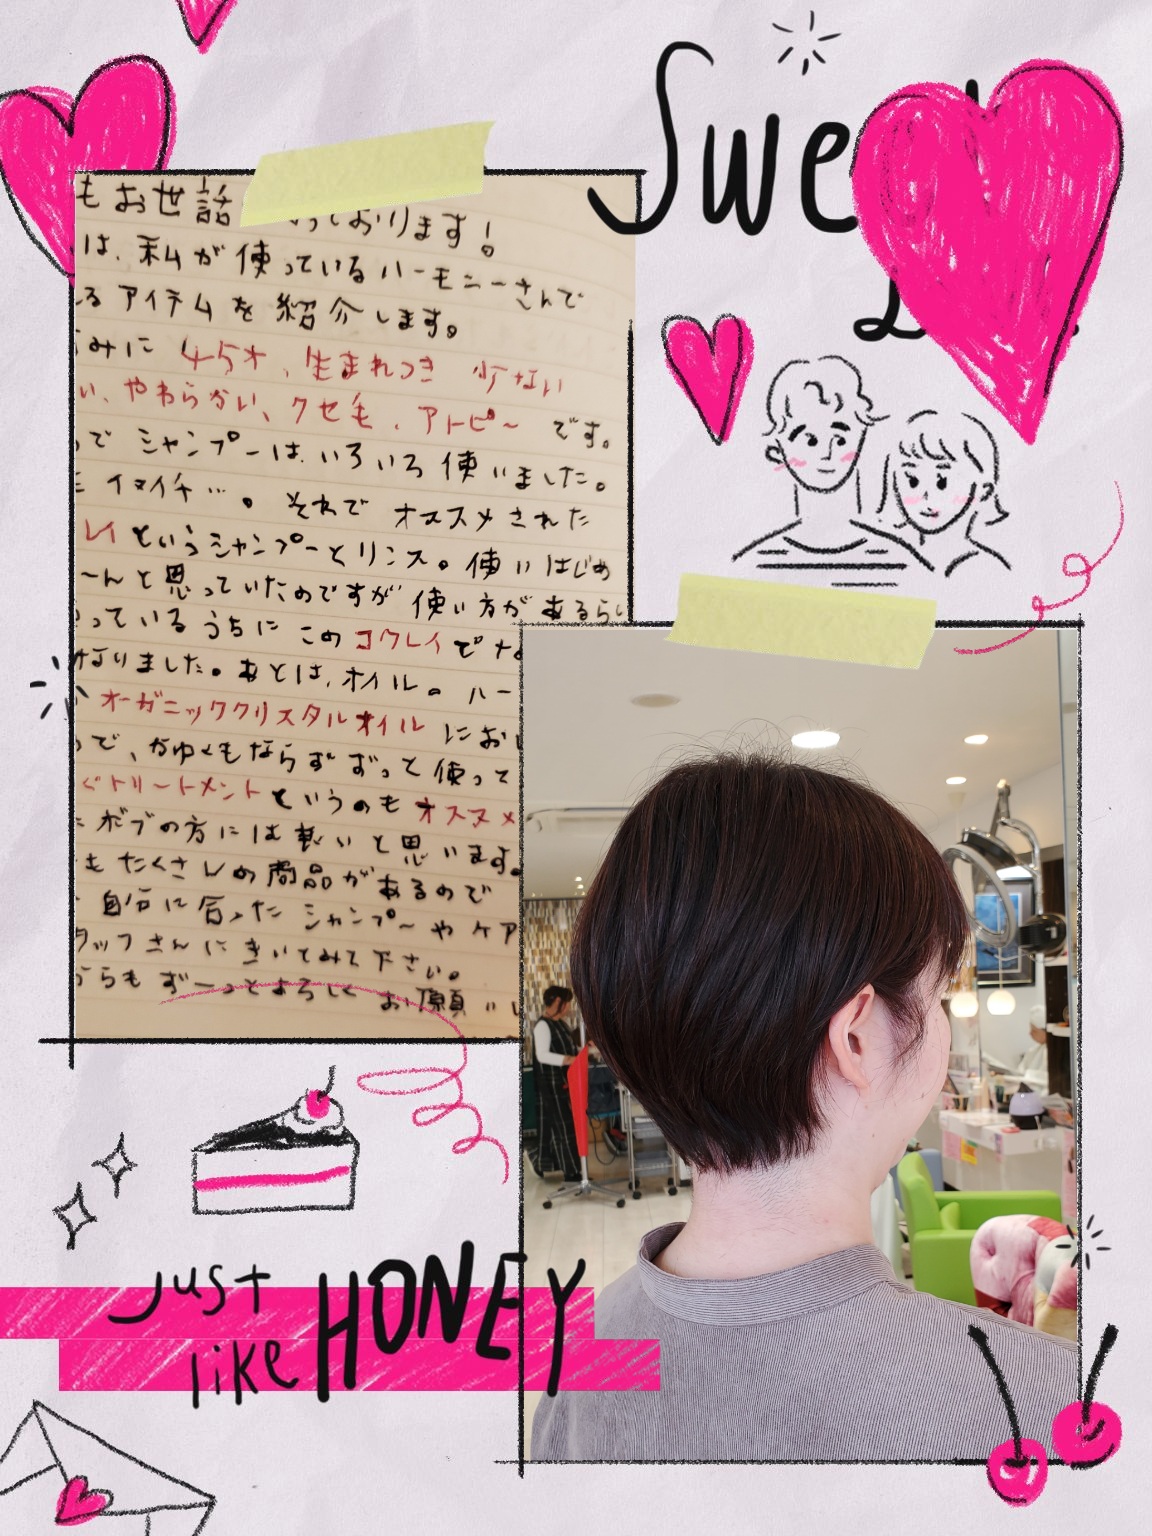 Swe
もお世話 っております!
は、私が使っているハーモニーさんで
るアイテムを紹介します。
みに 45才、生まれつき 少ない
い、やわらかい、クセ毛、アトピー です。
で シャンプーは、いろいろ使いました。
イマイチ…。それで オススメされた
レイというシャンプーとリンス。使いはじめ
〜んと思っていたのですが 使い方があるらし
っているうちに このコウレイで
なりました。あとは、オイル。ハー
オーガニッククリスタルオイル にお
で、かゆくもならず ずっと使って
ぐトリートメントというのも オススメ
ボブの方には良いと思います。
もたくさんの商品があるので
自分に合った シャンプーやケア
タッフさんにきいてみて下さい。
らも ず〜っとよろしく お願い
just
like HONEY